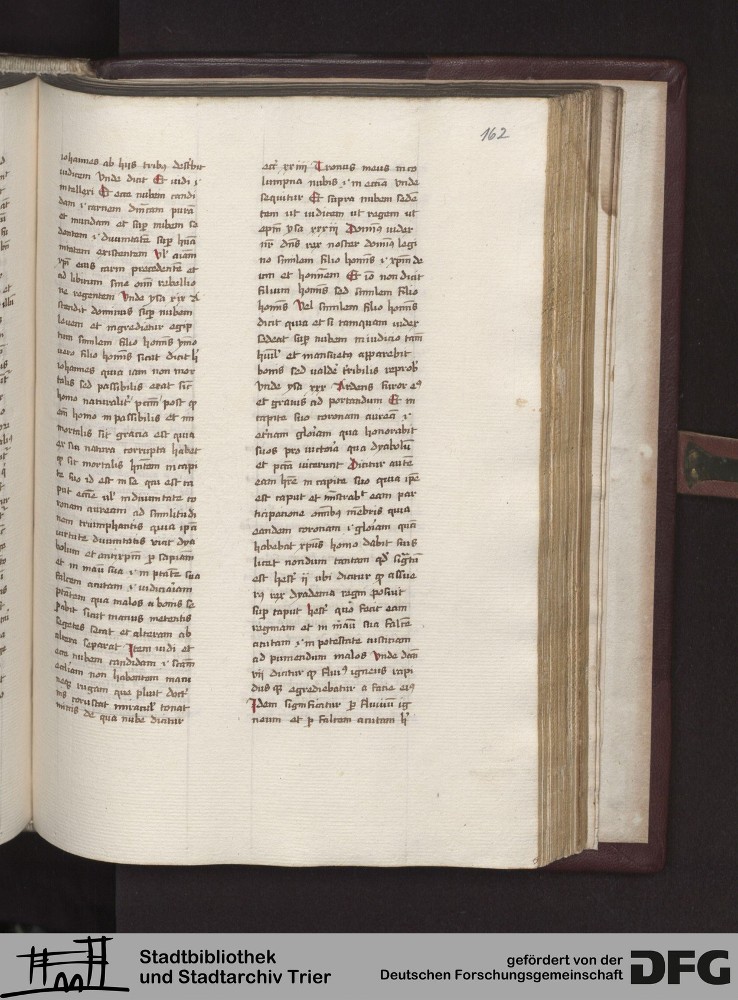 162
iohannes ab hijs tribus
iudicem Vnde dicit Et uidi i
intelleri Et ecce nubem candi
dam i carnem puram
et mundam et sup nubem se
dentem i diuinitate sup
mitatem existentem Vl
eius carni precedente et
ad libitum sine omi rebellio
ne regentem Vnde ysa xix
scendit dominus sup nubem
leuem et ingredietur egip
tum similem filio hominis ymo
uero filio hominis sicut dicit
iohannes quia iam non mor
talis sed passibilis erat sic
homo naturalit post
homo inpassibilis et im
mortalis sit gracia est quia
ex sui natura corrupta habet
sit mortalis in capi
te suo id est in se qui est ca
put uel in diuinitate co
ronam auream ad similitudi
nem triumphantis quia
uirtute diuinitatis uicit dya
bolum et antixpm p sapiam
et in manu sua i in ptate sua
falcem acutam i iudiciariam
ptatem qua malos a bonis se
pabit sicut manus metentis
segetes secat et alteram ab
altera separat Item uidi et
ecce nubem candidam i
ecclesiam non habentem macu
rugam que pluit
coruscat tonat
minis de qua nube dicitur
xxiiii Tronus meus in co
lumpna nubis i in ecclia vnde
sequitur Et supra nubem sede
tem ut iudicem ut regem ut
ysa xxxiii Dominus iuder
nr dns rex noster dominus legi
no similem filio hominis i xpm de
um et hominem Et io non dicit
filium hominis sed similem filio
hominis Vel similem filio hominis
dicit quia et si tamquam iuder
sedeat sup nubem in iudicio tam
et mansueto apparebit
bonis sed ualde tribilis reprob
Vnde ysa xxx Ardens furor
et grauis ad portandum Et in
capite suo coronam auream i
eternam gloriam qua honorabit
suos pro uictoria qua dyabolum
et uicerunt Dicitur
eam in capite suo quia
est caput et eam par
ticipatione omibus membris quia
eandem coronam i gloriam quam
habebat xpus homo dabit suis
licet nondum tantam
est hest ii ubi dicitur assue
rus rex dyadema regni posuit
sup caput hest quo fecit eam
regnare et in manu sua falce
acutam i in potestate
ad puniendum malos Vnde
vii dicitur fluuius igneus rapi
dus egrediebatur a facie
Idem significatur p fluuium ig
neum et p falcem acutam
Stadtbibliothek
und Stadtarchiv Trier
gefördert von der
Deutschen Forschungsgemeinschaft
DFG